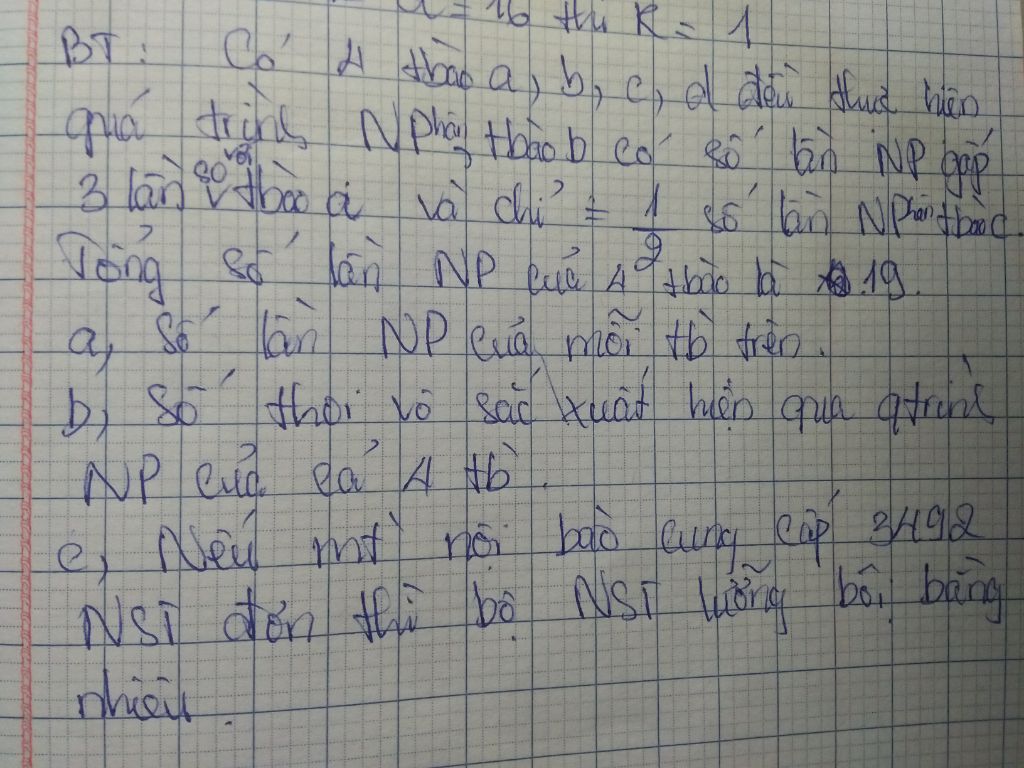 a = 16 thì K = 1
BT: Có 4 tbào a, b, c, d đều thực hiện
quá trình NPhân, tbào b có số lần NP gấp
3 lần so với tbào a và chỉ = 1/2 số lần NPhân tbào c.
Tổng số lần NP của 4 tbào là 19.
a, Số lần NP của mỗi tb trên.
b, Số thoi vô sắc xuất hiện qua qtrình
NP của cả 4 tb.
c, Nếu mt nội bào cung cấp 3492
NST đơn thì bộ NST lưỡng bội bằng
nhiêu.